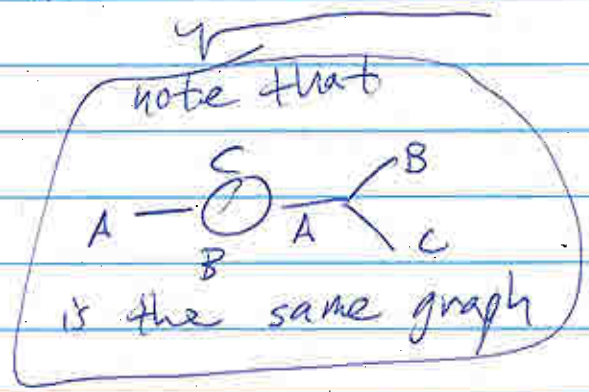 note that
C B
A A C
B
is the same graph